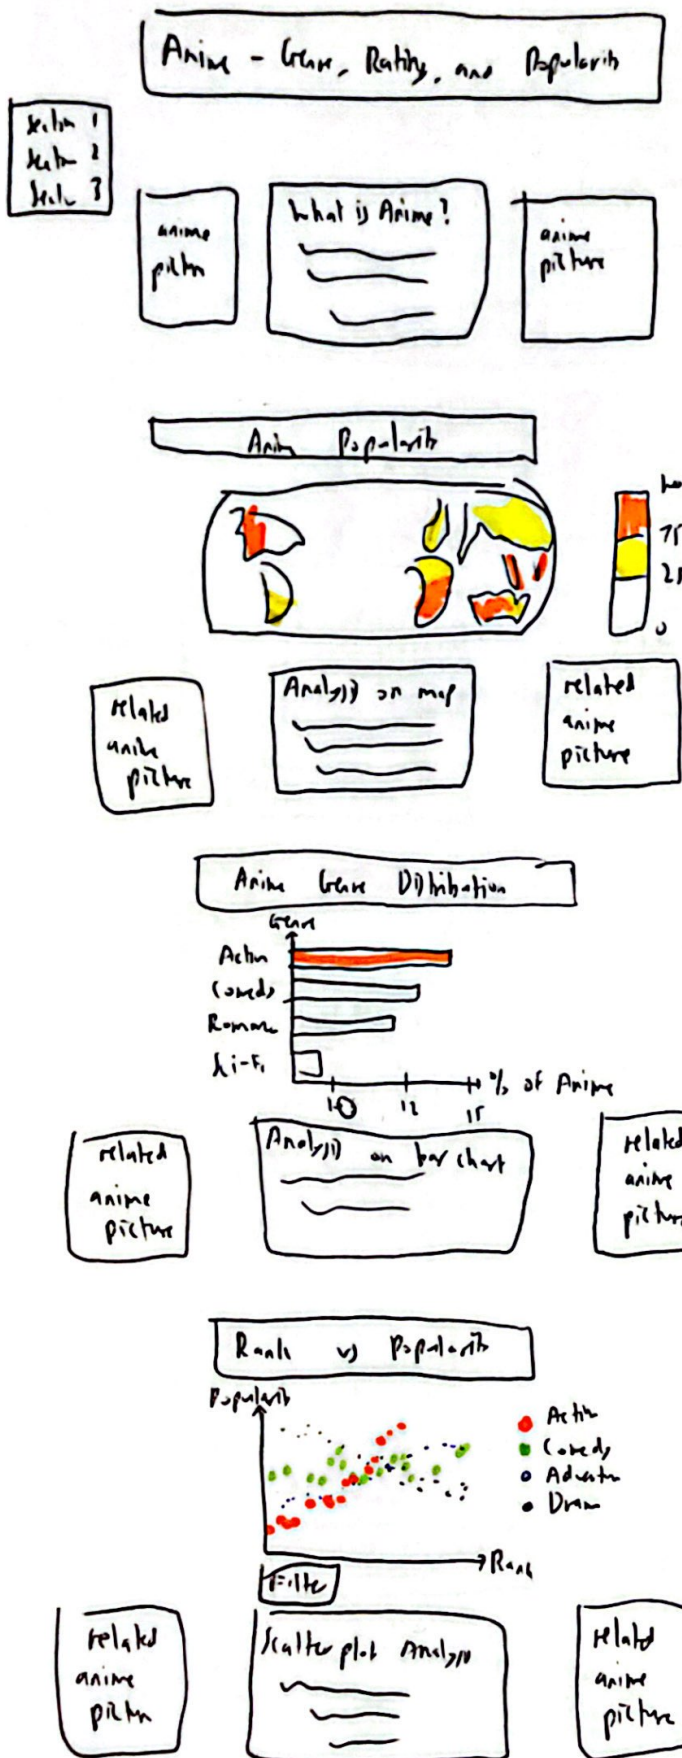 Anime - Genre, Rating, and Popularity
Section 1
Section 2
Section 3
anime
picture
What is Anime?
anime
picture
Anime Popularity
75
25
0
related
anime
picture
Analysis on map
related
anime
picture
Anime Genre Distribution
Genre
Action
Comedy
Romance
Sci-Fi
10 12 15
% of Anime
related
anime
picture
Analysis on bar chart
related
anime
picture
Rank vs Popularity
Popularity
Action
Comedy
Adventure
Drama
Rank
Filter
related
anime
picture
Scatter plot Analysis
related
anime
picture